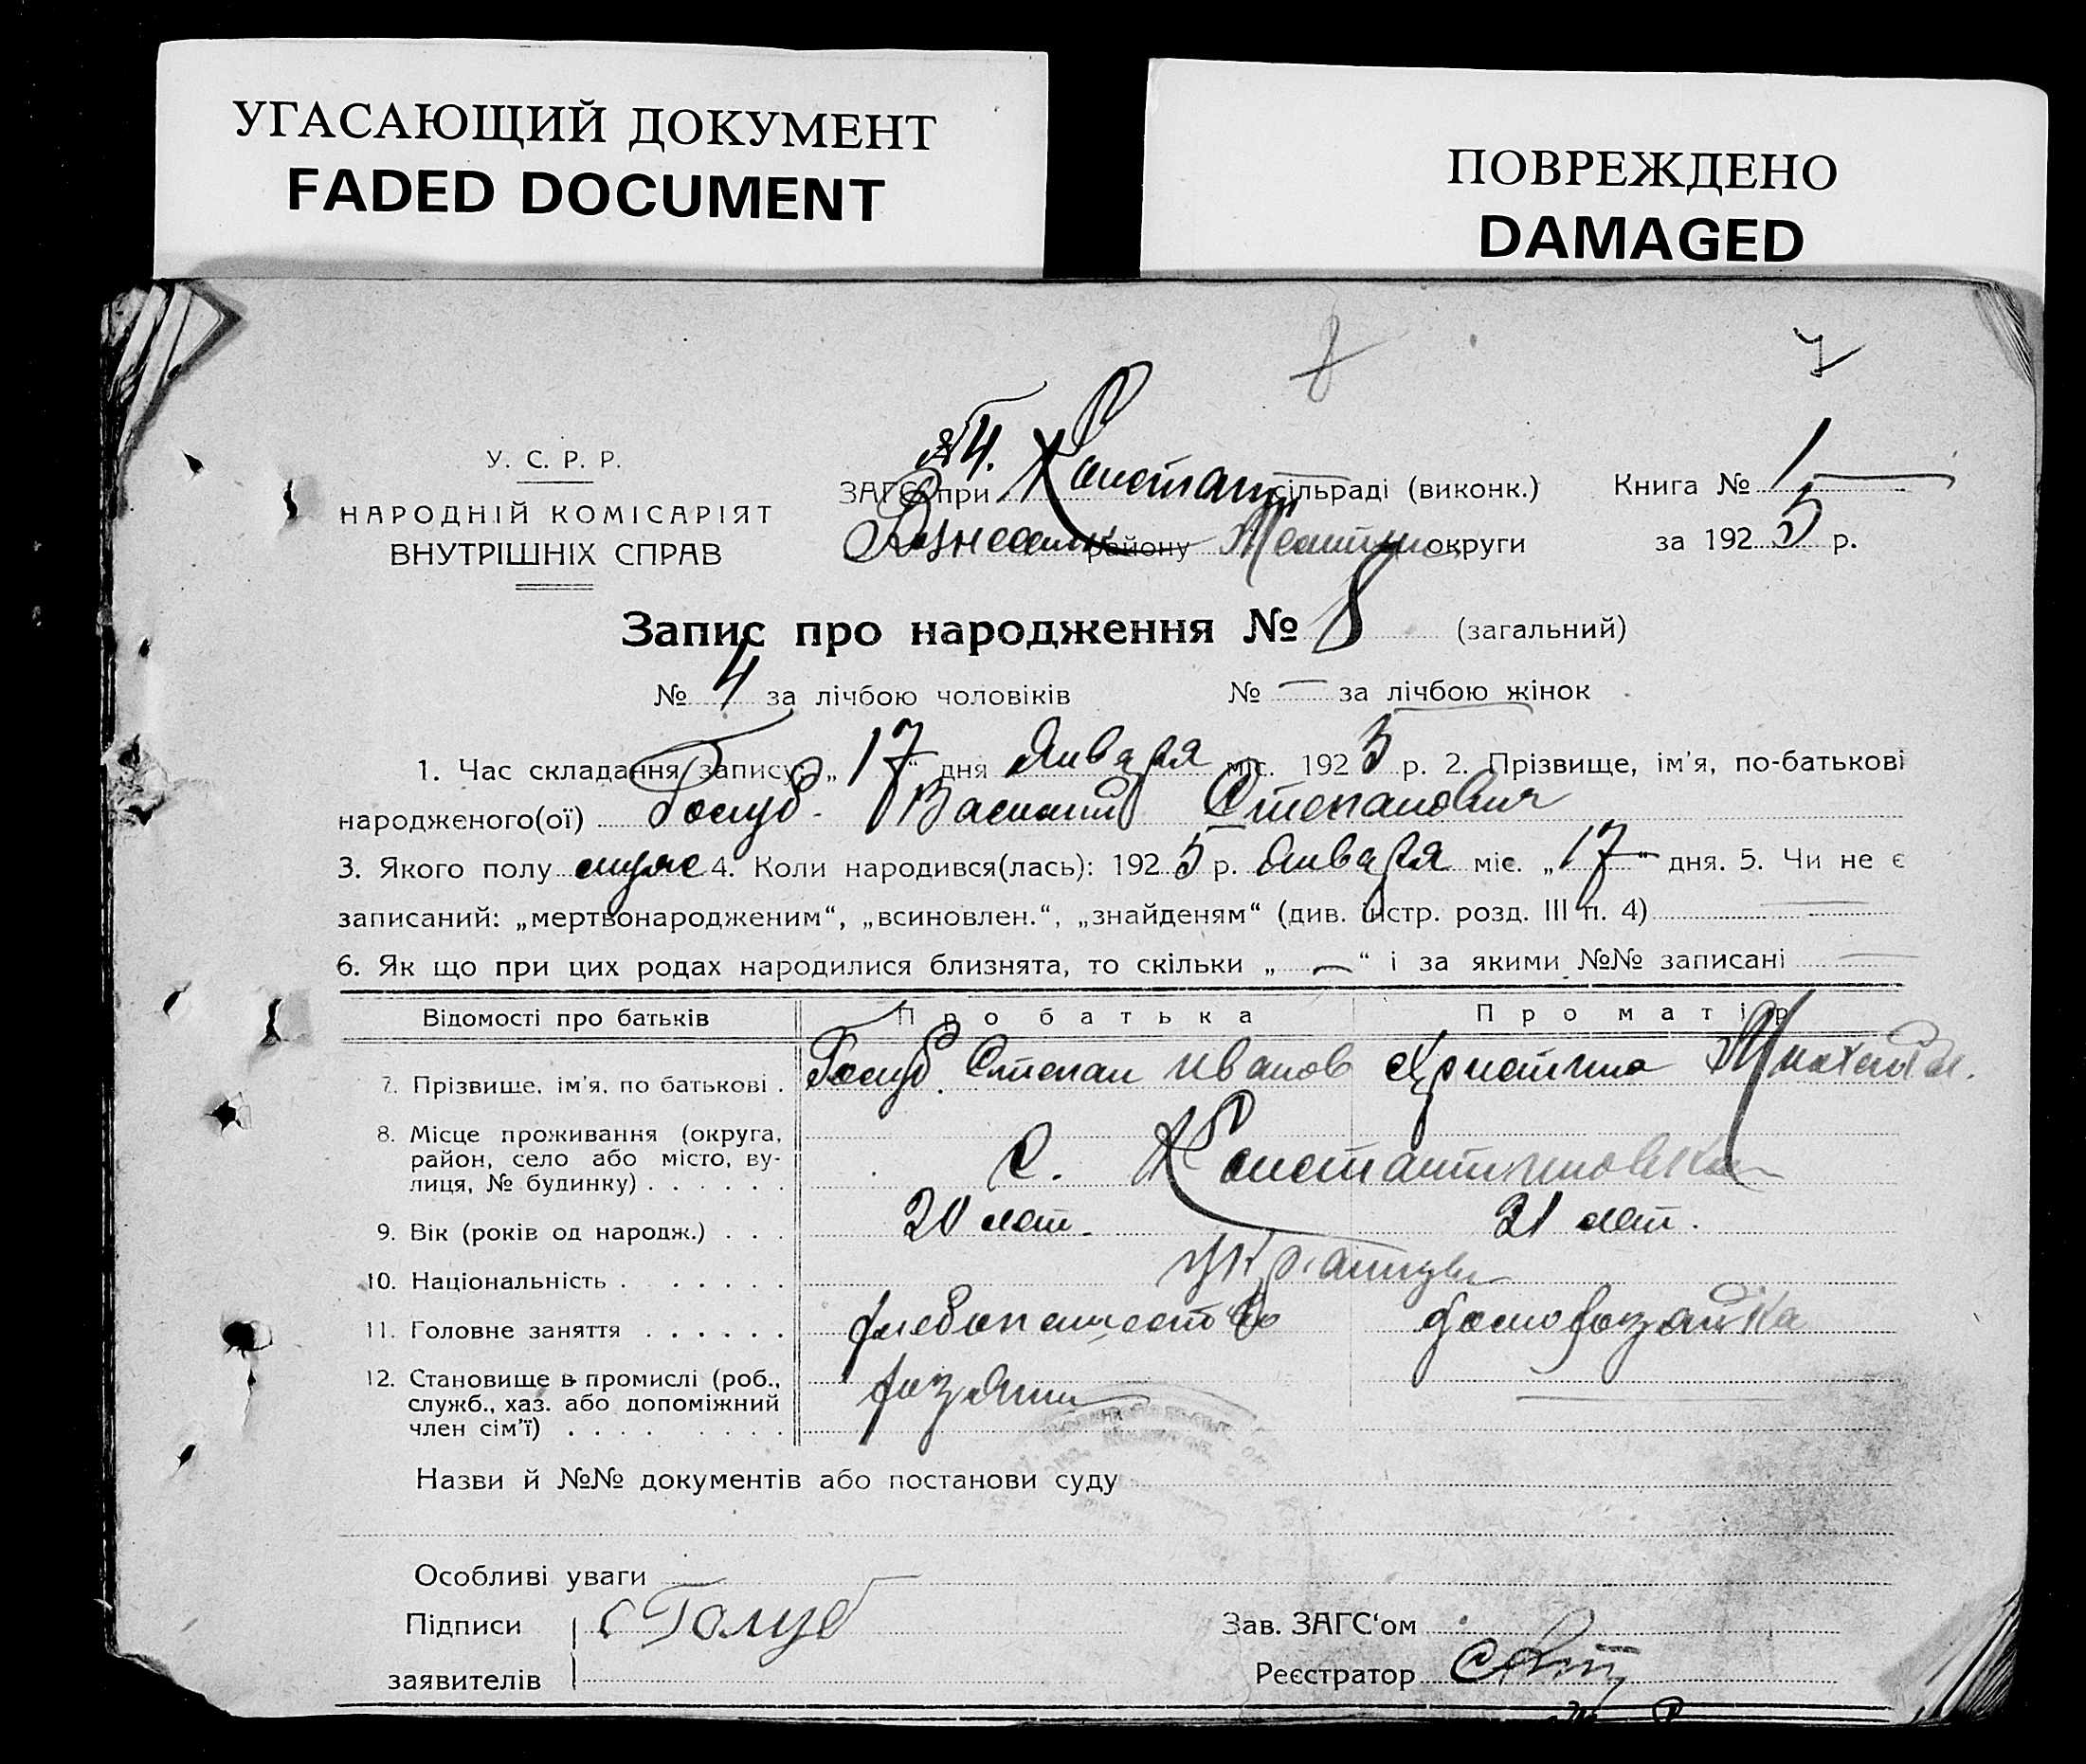 УГАСАЮЩИЙ ДОКУМЕНТ
FADED DOCUMENT
ПОВРЕЖДЕНО
DAMAGED
8 7
У. С. Р. Р.
НАРОДНІЙ КОМІСАРІЯТ
ВНУТРІШНІХ СПРАВ
ЗАГС при Константин сільраді (виконк.) Книга № 1
Вознесенск району округи за 1925 р.
Запис про народження № 8 (загальний)
№ 4 за лічбою чоловіків № — за лічбою жінок
1. Час складання запису: „17“ дня Января міс. 1925 р. 2. Прізвище, ім'я, по-батькові
народженого(ої) Голуб. Василий Степанович
3. Якого полу муж 4. Коли народився(лась): 1925 р. Января міс. „17“ дня. 5. Чи не є
записаний: „мертвонародженим“, „всиновлен.“, „знайденям“ (див. інстр. розд. III п. 4) —
6. Як що при цих родах народилися близнята, то скільки „ — “ і за якими №№ записані —
Відомості про батьків Про батька Про матір
7. Прізвище, ім'я, по батькові . Голуб. Степан Иванов Христина Михайл.
8. Місце проживання (округа,
район, село або місто, ву-
лиця, № будинку) . . . . . . с. Константиновка
9. Вік (років од народж.) . . . 20 лет. 21 лет.
10. Національність . . . . . . . Украинцы
11. Головне заняття . . . . . . хлебопашество домохозяйка
12. Становище в промислі (роб.,
служб., хаз. або допоміжний
член сім'ї) . . . . . . . . хозяин —
Назви й №№ документів або постанови суду
Особливі уваги
Підписи С Голуб Зав. ЗАГС'ом
заявителів Реєстратор